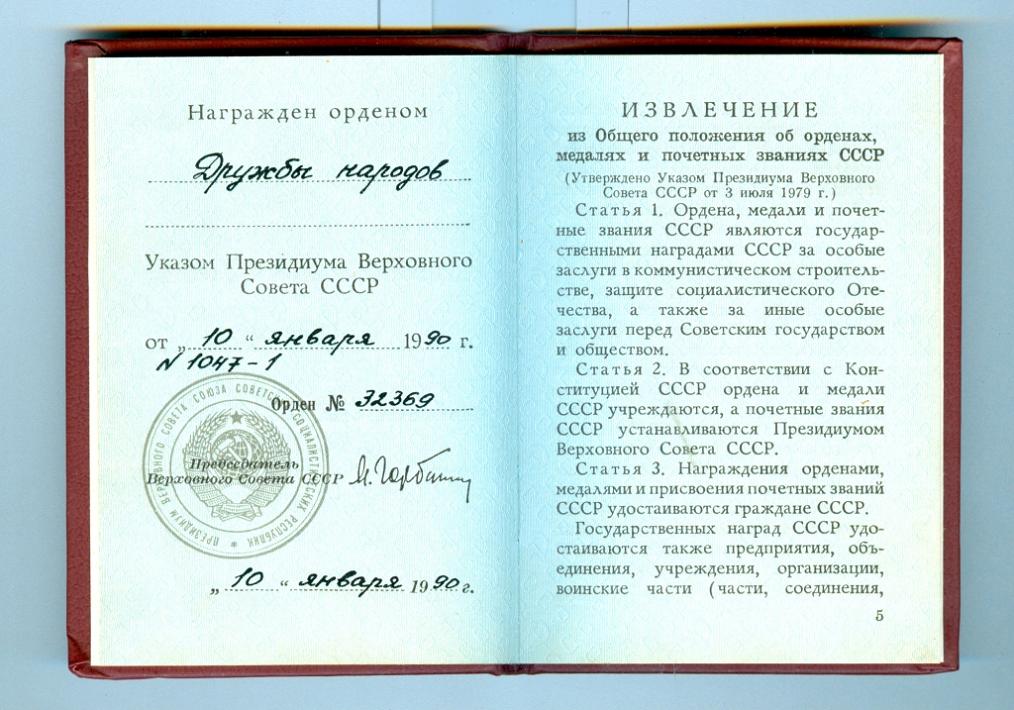 Награжден орденом
Дружбы народов
Указом Президиума Верховного
Совета СССР
от „ 10 “ января 1990 г.
N 1047-1
Орден № 32369
Председатель
Верховного Совета СССР М. Горбачев
ПРЕЗИДИУМ ВЕРХОВНОГО СОВЕТА СОЮЗА СОВЕТСКИХ СОЦИАЛИСТИЧЕСКИХ РЕСПУБЛИК *
„ 10 “ января 1990 г.
ИЗВЛЕЧЕНИЕ
из Общего положения об орденах,
медалях и почетных званиях СССР
(Утверждено Указом Президиума Верховного
Совета СССР от 3 июля 1979 г.)
Статья 1. Ордена, медали и почет-
ные звания СССР являются государ-
ственными наградами СССР за особые
заслуги в коммунистическом строитель-
стве, защите социалистического Оте-
чества, а также за иные особые
заслуги перед Советским государством
и обществом.
Статья 2. В соответствии с Кон-
ституцией СССР ордена и медали
СССР учреждаются, а почетные звания
СССР устанавливаются Президиумом
Верховного Совета СССР.
Статья 3. Награждения орденами,
медалями и присвоения почетных званий
СССР удостаиваются граждане СССР.
Государственных наград СССР удо-
стаиваются также предприятия, объ-
единения, учреждения, организации,
воинские части (части, соединения,
5